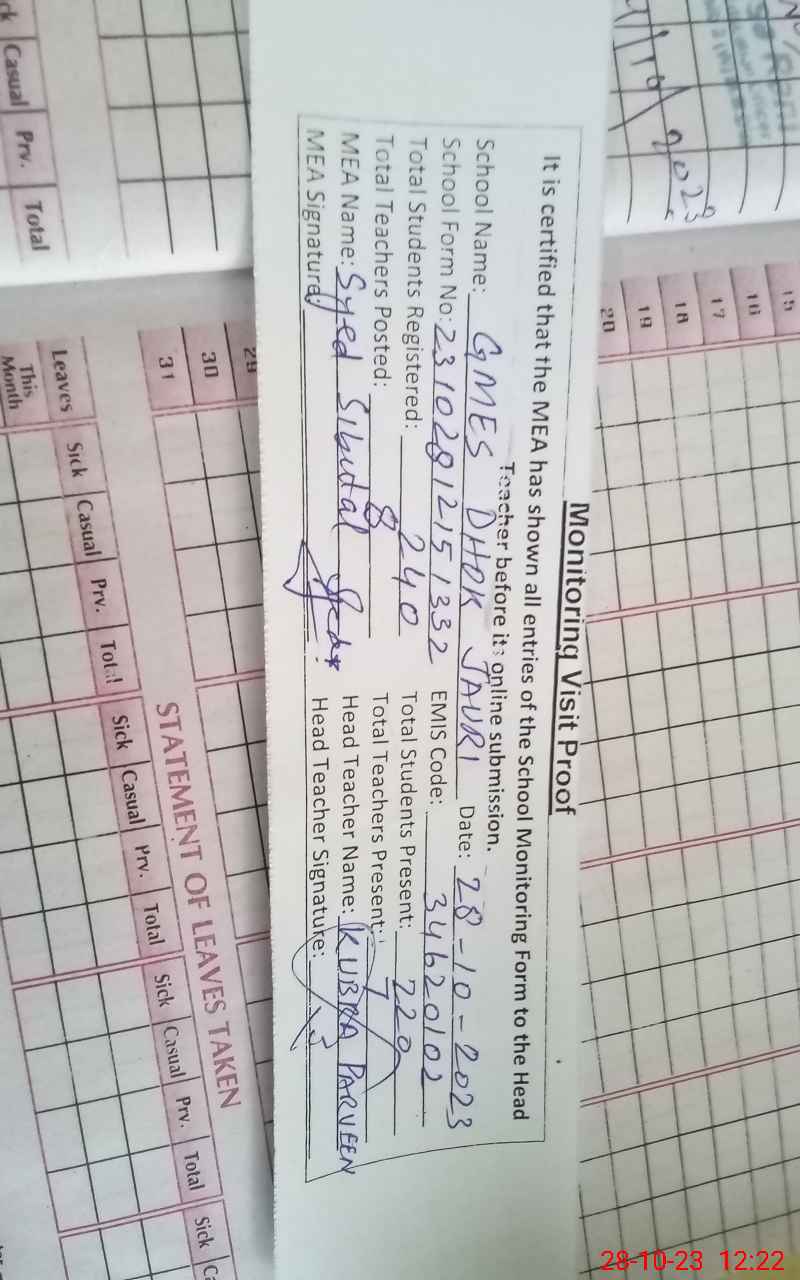 Monitoring Visit Proof
It is certified that the MEA has shown all entries of the School Monitoring Form to the Head
Teacher before its online submission.
School Name: GMES DHOK JAURI Date: 28-10-2023
School Form No: 23102812151332 EMIS Code: 34620102
Total Students Registered: 240 Total Students Present: 220
Total Teachers Posted: 8 Total Teachers Present: 7
MEA Name: Syed Sibutal Head Teacher Name: KUBRA PARVEEN
MEA Signature: Head Teacher Signature:
2023
15
16
17
18
19
20
29
30
31
STATEMENT OF LEAVES TAKEN
Leaves Sick Casual Prv. Total Sick Casual Prv. Total Sick Casual Prv. Total Sick
This
Month
Casual Prv. Total
28-10-23 12:22